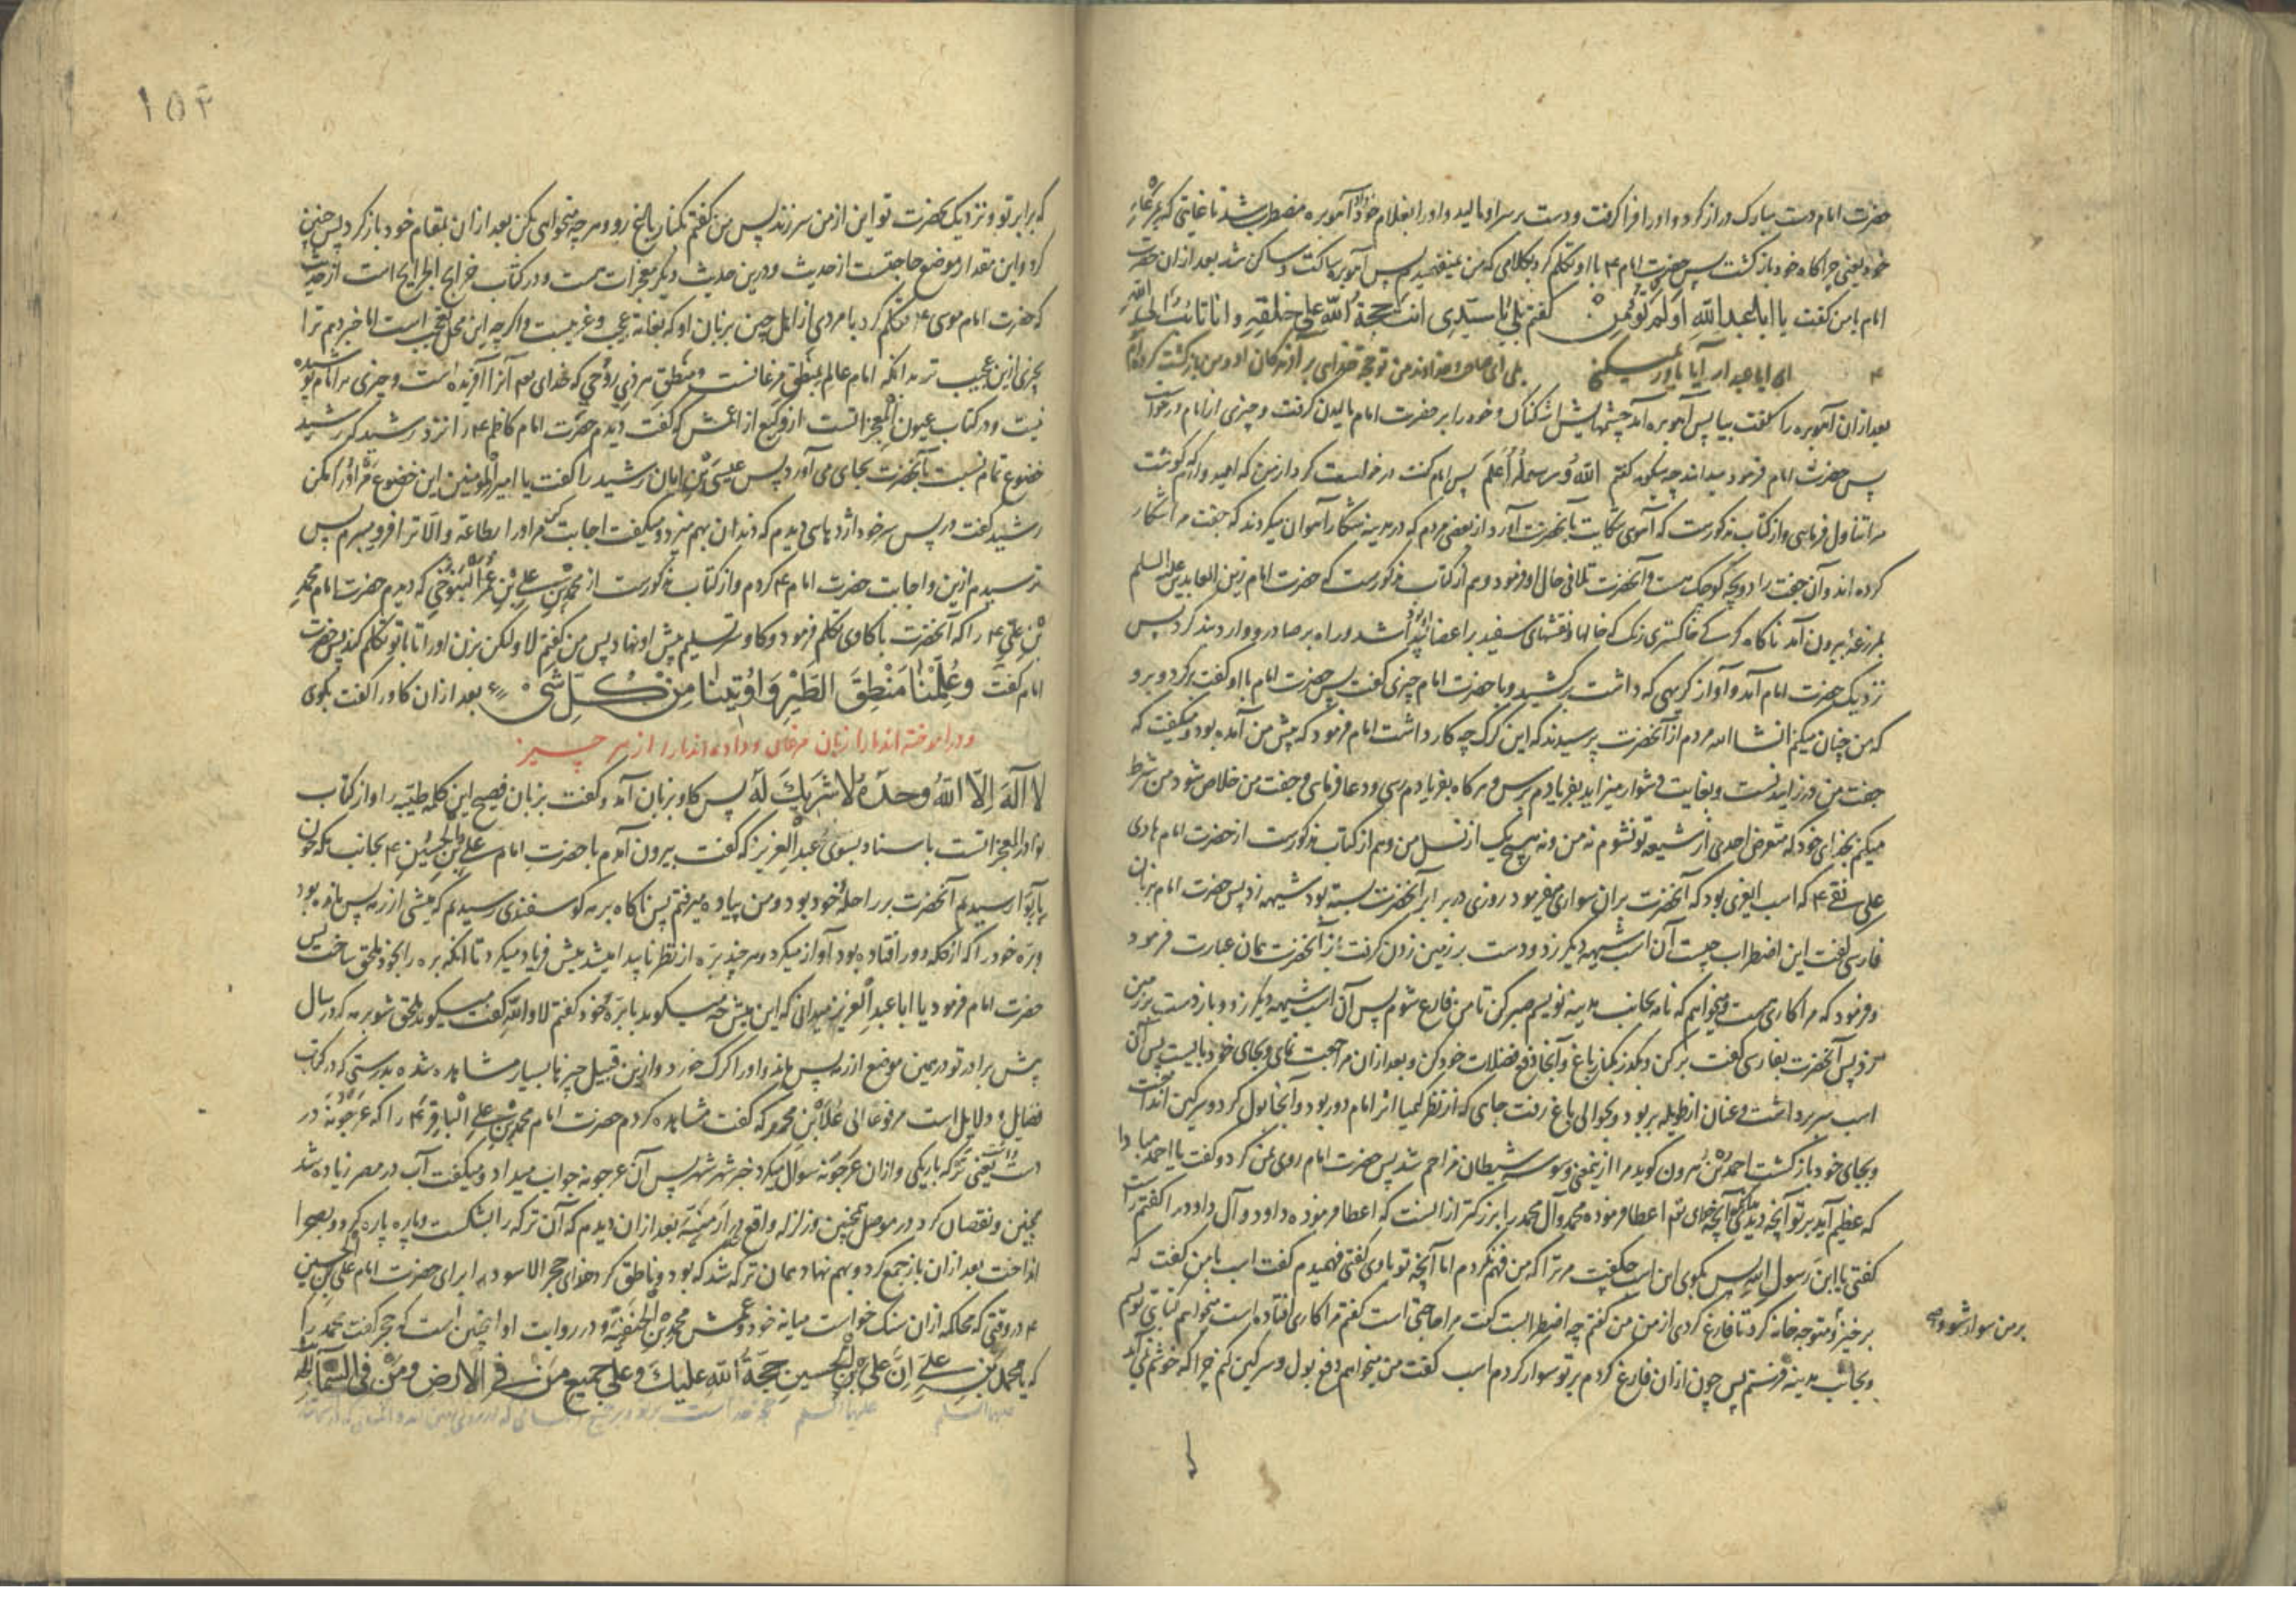 حضرت امام دست مبارک دراز کرد و او را فرا گرفت و دست بر سر او مالید و او را بغلام خود داد آهوبره مضطرب شد تا غایتی که بمرغزار
خود یعنی چراگاه خود بازگشت پس حضرت امام ۴ با او تکلم کرد بکلامی که من نمیفهمیدم پس آهوبره ساکت و ساکن شد بعد از ان حضرت
امام با من گفت یا ابا عبدالله اولم تؤمن گفتم بلی یا سیدی انت حجة الله علی خلقه وانا تائب الی الله
ای ابا عبدالله آیا باور نمیکنی بلی ای خداوند من تو حجت خدایی بر آفریدگان او و من بازگشت کردم
بعد از ان آهوبره را گفت بیا پس آهوبره آمد چشمهایش اشکناک و خود را بر حضرت امام مالیدن گرفت و چیزی از امام درخواست
پس حضرت امام فرمود میداند چه میگوید گفتم الله ورسوله اعلم پس امام گفت درخواست کرد از من که امید وارم که گوشت
مرا تناول فرمایی و از کتاب مذکورست که آهوی شکایت بآنحضرت آورد از بعضی مردم که در مدینه شکار آهوان میکردند که جفت مرا شکار
کرده اند و آن جفت را دو بچه کوچک هست و آنحضرت تلافی حال او فرمود و هم از کتاب مذکورست که حضرت امام زین العابدین علیه السلم
بمزرعه بیرون آمد ناگاه گرگی خاکستری رنگ که خالها و نقشهای سفید بر اعضا او بود پیدا شد و راه بر صادر و وارد بند کرد پس
نزدیک حضرت امام آمد و آواز کریهی که داشت برکشید و با حضرت امام چیزی گفت پس حضرت امام با او گفت برگرد و برو
که من چنان میکنم انشا الله مردم از آنحضرت پرسیدند که این گرگ چه کار داشت امام فرمود که پیش من آمده بود و میگفت که
جفت من در زاییدنست و بغایت دشوار میزاید بفریادم برس و هر گاه بفریادم رسی و دعا فرمایی و جفت من خلاص شود من شرط
میکنم بخدای خود که متعرض احدی از شیعه تو نشوم نه من و نه هیچ یک از نسل من و هم از کتاب مذکورست از حضرت امام هادی
علی نقی ۴ که اسب ابلغی بود که آنحضرت بران سواری میفرمود روزی در برابر آنحضرت بسته بود شیهه زد پس حضرت امام بزبان
فارسی گفت این اضطراب چیست آن اسب شیهه دیگر زد و دست بر زمین زدن گرفت باز آنحضرت همان عبارت فرمود
و فرمود که مرا کاری هست و میخواهم که نامه بجانب مدینه نویسم صبر کن تا من فارغ شوم پس آن اسب شیهه دیگر زد و باز دست بر زمین
زد پس آنحضرت بفارسی گفت برکن و بگذر بکنار باغ و آنجا دفع فضلات خود کن و بعد از ان مراجعت نمای و بجای خود بایست پس آن
اسب سر برداشت و عنان از طویله بربود و بحوالی باغ رفت جایی که از نظر کیمیا اثر امام دور بود و آنجا بول کرد و سرگین انداخت
و بجای خود بازگشت احمد بن هرون گوید مرا از بن معنی وسوسه شیطان مزاحم شد پس حضرت امام روی بمن کرد و گفت یا احمد مبادا
که عظیم آید بر تو آنچه دیدی بدرستی که آنچه خدای تعالی اعطا فرموده محمد وآل محمد را بزرگتر از انست که اعطا فرموده داود و آل داود را گفتم راست
گفتی یا ابن رسول الله پس بگوی این اسب چه گفت مر ترا که من فهم نکردم اما آنچه تو با وی گفتی فهمیدم گفت اسب با من گفت که
برخیز و متوجه خانه گرد تا فارغ گردی از من من گفتم چه اضطرابست گفت مرا حاجتی است گفتم مرا کاری افتاده است میخواهم کتابتی نویسم
بر من سوار شو و
و بجانب مدینه فرستم پس چون از ان فارغ گردم بر تو سوار گردم اسب گفت من میخواهم دفع بول و سرگین کنم چرا که خوشم نمی آید
۱۵۴
که برابر تو و نزدیک بحضرت تو این از من سر زند پس من گفتم بکنار باغ رو و هر چه میخواهی بکن بعد از ان بمقام خود باز گرد پس چنین
کرد و این مقدار موضع حاجتست از حدیث و درین حدیث دیگر معجزات هست و در کتاب خرایج الجرایح است از حدیث
که حضرت امام موسی ۴ تکلم کرد با مردی از اهل چین بزبان او که بغایت عجب و غریبست و اگر چه این محل تعجب است اما خبر دهم ترا
بچیزی ازین عجیب تر بدانکه امام عالم بمنطق مرغانست و منطق هر ذی روحی که خدای تعالی آنرا آفریده است و چیزی بر امام پوشیده
نیست و در کتاب عیون المعجزاتست از وکیع از اعمش که گفت دیدم حضرت امام کاظم ۴ را نزد رشید که رشید
خضوع تمام نسبت بآنحضرت بجای می آورد پس عیسی بن ابان رشید را گفت یا امیر المؤمنین این خضوع مر او را مکن
رشید گفت در پس سر خود اژدهایی دیدم که دندان بهم میزد و میگفت اجابت کن مر او را بطاعت و الا ترا فرو میبرم پس
ترسیدم ازین و اجابت حضرت امام ۴ کردم و از کتاب مذکورست از محمد بن علی بن عمر التنوخی که دیدم حضرت امام محمد
بن علی ۴ را که آنحضرت با گاوی تکلم فرمود و گاو سر تسلیم پیش او نهاد پس من گفتم لا ولکن بزن او را تا با تو تکلم کند پس حضرت
امام گفت وعلمنا منطق الطیر واوتینا من کل شیء بعد از ان گاو را گفت بگوی
و در آموخته اند ما را زبان مرغان و داده اند ما را از هر چیز
لا اله الا الله وحده لا شریک له پس گاو بزبان آمد و گفت بزبان فصیح این کلمه طیبه را و از کتاب
نوادر المعجزاتست باسناد بسوی عبد العزیز که گفت بیرون آمدم با حضرت امام علی بن الحسین ۴ بجانب مکه چون
بابوا رسیدیم آنحضرت بر راحله خود بود و من پیاده میرفتم پس ناگاه برمه گوسفندی رسیدیم که میشی از رمه پس مانده بود
و بره خود را که از گله دور افتاده بود آواز میکرد و هر چند بره از نظر ناپدا میشد میش فریاد میکرد تا آنکه بره را بخود ملحق ساخت پس
حضرت امام فرمود یا ابا عبد العزیز میدانی که این میش چه میگوید با بره خود گفتم لا والله گفت میگوید ملحق شو برمه که در سال
پیش برادر تو در همین موضع از رمه پس ماند و او را گرگ خورد و ازین قبیل چیزها بسیار مشاهده شده بدرستی که در کتاب
فضایل و دلایل است مرفوعا الی علا بن محمد که گفت مشاهده کردم حضرت امام محمد بن علی الباقر ۴ را که عرجونه در
دست داشت یعنی ترکه باریکی و از ان عرجونه سوال میکرد خبر شهر شهر پس آن عرجونه جواب میداد و میگفت آب در مصر زیاده شد
بچنین و نقصان کرد در موصل بچنین و زلزله واقع شد در ارمنیه بعد از ان دیدم که آن ترکه را بشکست و پاره پاره کرد و بصحرا
انداخت بعد از ان باز جمع کرد و بهم نهاد همان ترکه شد که بود و ناطق کرد خدای حجر الاسود را برای حضرت امام علی بن الحسین
۴ در وقتی که محاکمه ازان سنگ خواست میانه خود و عمش محمد بن الحنفیه و در روایت او اینچنین است که حجر گفت محمد را
که یا محمد بن علی ان علی بن الحسین حجة الله علیک وعلی جمیع من فی الارض ومن فی السمآء
علیهما السلم علیهما السلم حجت خداست بر تو و بر جمیع